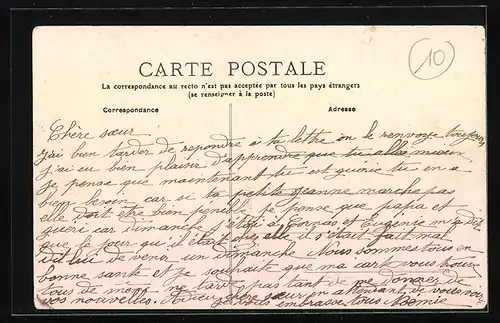 10
CARTE POSTALE
La correspondance au recto n'est pas acceptée par tous les pays étrangers
(se renseigner à la poste)
Correspondance
Adresse
Chère sœur
j'ai bien tarder de repondre à ta lettre on le renvoye toujours
j'ai eu bien plaisir d'apprendre que tu allez mieux
je pense que maintenant tu est guerie tu en a
bien besoin car si ta petite jeanne marche pas
elle doit être bien penible je pense que papa et
gueri car dimanche j'étai à Cornas et Eugénie m'a dit
que le jour qu'il était elle il s'était fait mal
dit lui de venir un dimanche Nous sommes tous en
bonne santé et je souhaite que ma carte vous trouve
tous de même ne tarde pas tant de me donner de
vos nouvelles. Adieu chère sœur en attendant de vous voir
je vous embrasse tous Noémie